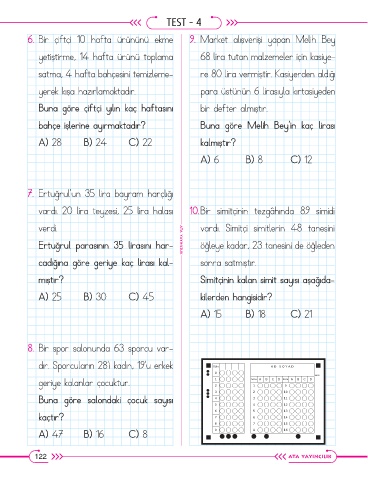 TEST - 4
6. Bir çiftçi 10 hafta ürününü ekme
yetiştirme, 14 hafta ürünü toplama
satma, 4 hafta bahçesini temizleme-
yerek kışa hazırlamaktadır.
Buna göre çiftçi yılın kaç haftasını
bahçe işlerine ayırmaktadır?
A) 28 B) 24 C) 22
7. Ertuğrul'un 35 lira bayram harçlığı
vardı. 20 lira teyzesi, 25 lira halası
verdi.
Ertuğrul parasının 35 lirasını har-
cadığına göre geriye kaç lirası kal-
mıştır?
A) 25 B) 30 C) 45
8. Bir spor salonunda 63 sporcu var-
dır. Sporcuların 28'i kadın, 19'u erkek
geriye kalanlar çocuktur.
Buna göre salondaki çocuk sayısı
kaçtır?
A) 47 B) 16 C) 8
9. Market alışverişi yapan Melih Bey
68 lira tutan malzemeler için kasiye-
re 80 lira vermiştir. Kasiyerden aldığı
para üstünün 6 lirasıyla kırtasiyeden
bir defter almıştır.
Buna göre Melih Bey'in kaç lirası
kalmıştır?
A) 6 B) 8 C) 12
10. Bir simitçinin tezgâhında 89 simidi
vardı. Simitçi simitlerin 48 tanesini
öğleye kadar, 23 tanesini de öğleden
sonra satmıştır.
Simitçinin kalan simit sayısı aşağıda-
kilerden hangisidir?
A) 15 B) 18 C) 21
AD SOYAD
122
ATA YAYINCILIK